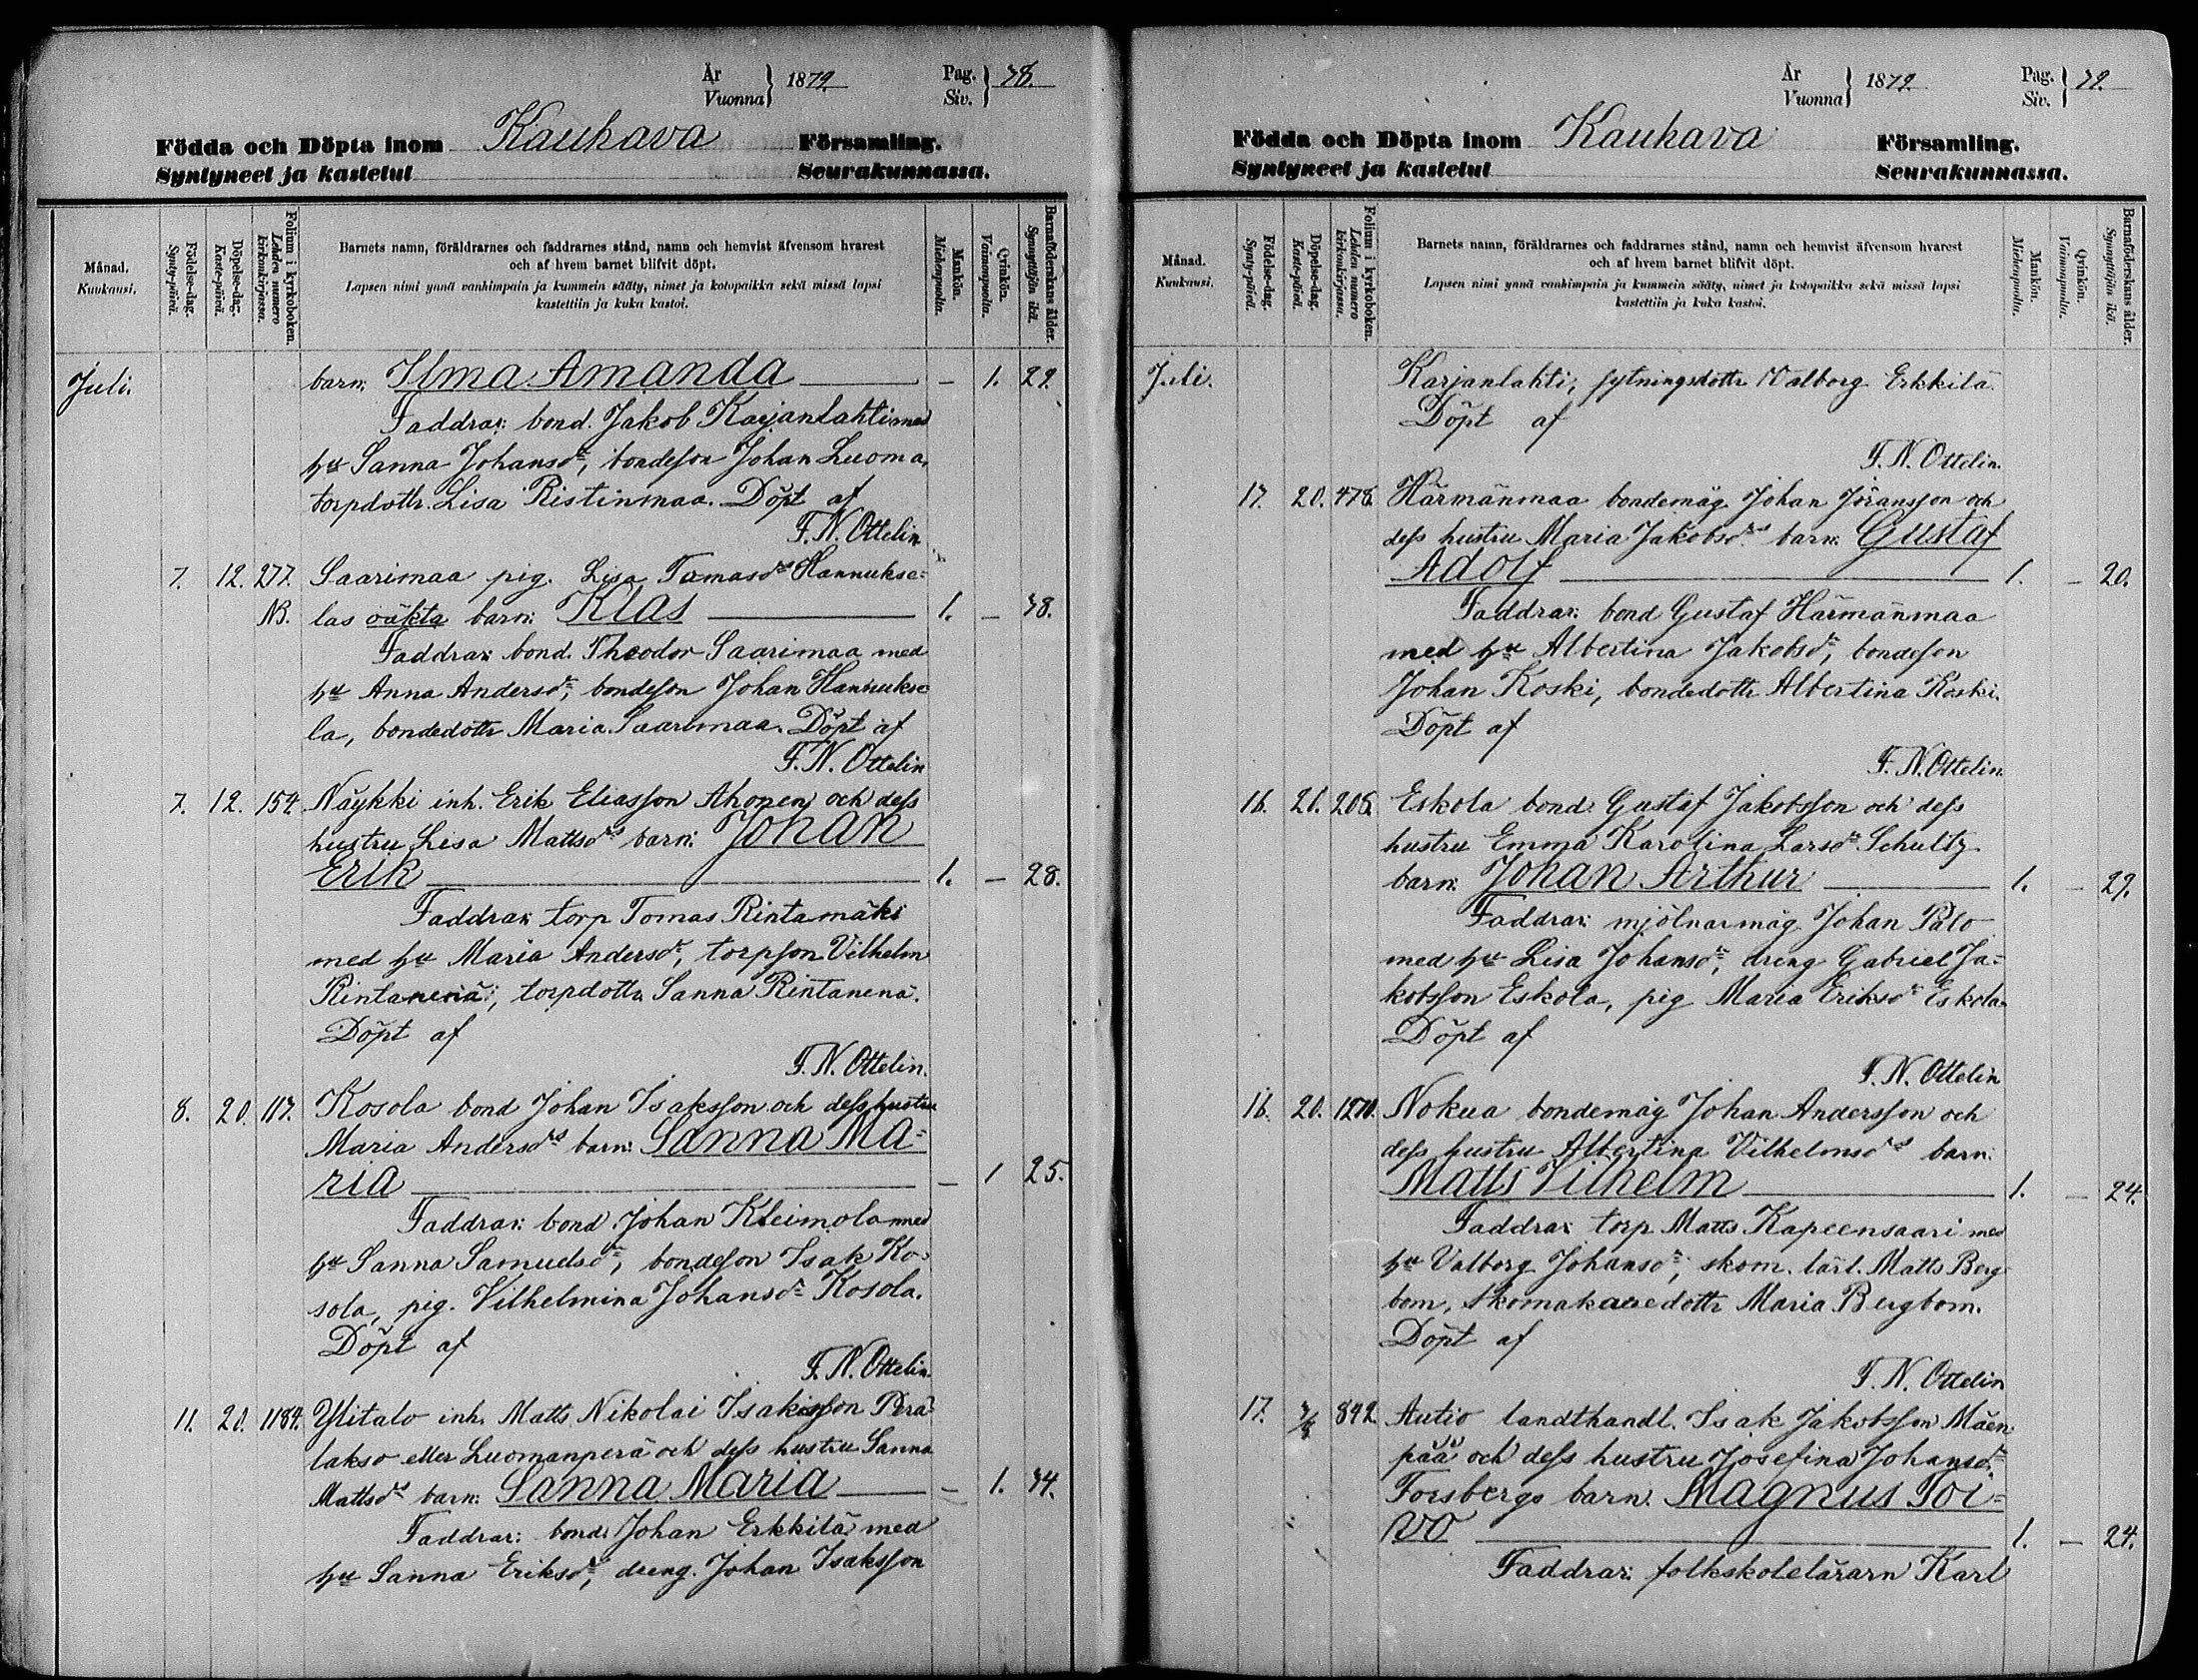 År
Vuonna } 1879.
Pag.
Siv. } 38.
Födda och Döpta inom Kauhava Församling.
Syntyneet ja kastetut Seurakunnassa.
Månad.
Kuukausi.
Födelse-dag.
Synty-päivä.
Döpelse-dag.
Kaste-päivä.
Folium i kyrkoboken.
Lehden numero
kirkonkirjassa.
Barnets namn, föräldrarnes och faddrarnes stånd, namn och hemvist äfvensom hvarest
och af hvem barnet blifvit döpt.
Lapsen nimi ynnä vanhimpain ja kummein sääty, nimet ja kotopaikka sekä missä lapsi
kastettiin ja kuka kastoi.
Mankön.
Miehenpuolta.
Qvinkön.
Vaimonpuolta.
Barnaföderskans ålder.
Synnyttäjän ikä.
Juli. barn: Ilma Amanda — 1. 29.
Faddrar: bond. Jakob Karjanlahti med
hu Sanna Johansdr, bondesson Johan Luoma,
torpdottr. Lisa Ristinmaa. Döpt af
F. N. Ottelin
7. 12. 277. Saarimaa pig. Lisa Tomasdrs Hannukse=
NB. las oäkta barn: Klas 1. — 38.
Faddrar: bond. Theodor Saarimaa med
hu Anna Andersdr, bondeson Johan Hannukse
la, bondedottr Maria Saarimaa. Döpt af
F. N. Ottelin
7. 12. 154. Näykki inh. Erik Eliasson Ahonen och dess
hustru Lisa Mattsdrs barn: Johan
Erik 1. — 28.
Faddrar: torp Tomas Rintamäki
med hu Maria Andersdr, torpson Vilhelm
Rintanenä, torpdottr Sanna Rintanenä.
Döpt af
F. N. Ottelin.
8. 20. 117. Kosola bond Johan Isaksson och dess hustru
Maria Andersdrs barn: Sanna Ma=
ria — 1 25.
Faddrar: bond Johan Kleimola med
hu Sanna Samuelsdr, bondeson Isak Ko=
sola, pig. Vilhelmina Johansdr Kosola.
Döpt af
F. N. Ottelin.
11. 20. 1184. Ylitalo inh. Matts Nikolai Isaksson Perä
lakso eller Luomanperä och dess hustru Sanna
Mattsdrs barn: Sanna Maria — 1. 34.
Faddrar: bond. Johan Erkkilä med
hu Sanna Eriksdr, dreng. Johan Isaksson
År
Vuonna } 1879.
Pag.
Siv. } 39.
Födda och Döpta inom Kauhava Församling.
Syntyneet ja kastetut Seurakunnassa.
Månad.
Kuukausi.
Födelse-dag.
Synty-päivä.
Döpelse-dag.
Kaste-päivä.
Folium i kyrkoboken.
Lehden numero
kirkonkirjassa.
Barnets namn, föräldrarnes och faddrarnes stånd, namn och hemvist äfvensom hvarest
och af hvem barnet blifvit döpt.
Lapsen nimi ynnä vanhimpain ja kummein sääty, nimet ja kotopaikka sekä missä lapsi
kastettiin ja kuka kastoi.
Mankön.
Miehenpuolta.
Qvinkön.
Vaimonpuolta.
Barnaföderskans ålder.
Synnyttäjän ikä.
Juli. Karjanlahti, sytningsdottr Valborg Erkkilä.
Döpt af
F. N. Ottelin.
17. 20. 478. Härmänmaa bondemåg Johan Jöransson och
dess hustru Maria Jakobsdrs barn: Gustaf
Adolf 1. — 20.
Faddrar: bond Gustaf Härmänmaa
med hu Albertina Jakobsdr, bondeson
Johan Koski, bondedottr Albertina Koski.
Döpt af
F. N. Ottelin.
16. 20. 206. Eskola bond. Gustaf Jakobsson och dess
hustru Emma Karolina Larsdr Schultz
barn: Johan Arthur 1. — 29.
Faddrar: mjölnarmåg Johan Palo
med hu Lisa Johansdr, dreng Gabriel Ja=
kobsson Eskola, pig Maria Eriksdr Eskola.
Döpt af
F. N. Ottelin
16. 20. 1270. Nokua bondemåg Johan Andersson och
dess hustru Albertina Vilhelmsdrs barn:
Matts Vilhelm 1. — 24.
Faddrar: torp Matts Kapeensaari med
hu Valborg Johansdr, skom. lärl. Matts Berg
bom, skomakaredottr Maria Bergbom.
Döpt af
F. N. Ottelin
17. 3/8 892. Autio landthandl. Isak Jakobsson Mäen
pää och dess hustru Josefina Johansdr
Forsbergs barn: Magnus Toi=
vo 1. — 24.
Faddrar: folkskolelärarn Karl